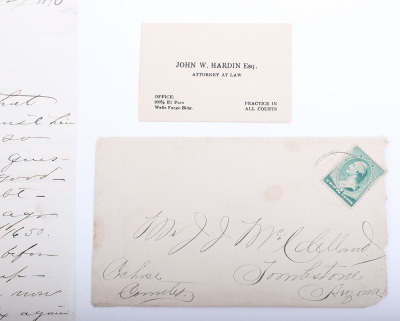 that
so
ques
good
bt -
ago
1650.
befor
up -
now
again
JOHN W. HARDIN Esq.
ATTORNEY AT LAW
OFFICE:
200½ El Paso
Wells Fargo Bldg.
PRACTICE IN
ALL COURTS
Mr J. J. McClelland
Tombstone
Arizona
Cochise
County